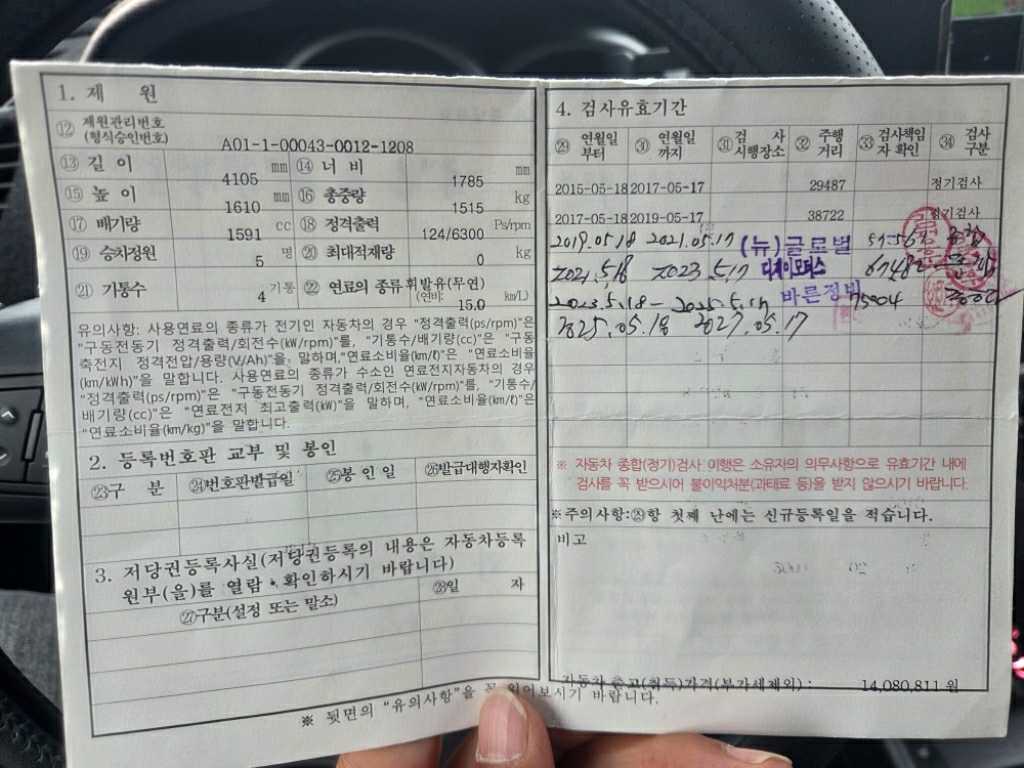 1. 제 원
⑫ 제원관리번호 (형식승인번호) A01-1-00043-0012-1208
⑬ 길 이 4105 mm ⑭ 너 비 1785 mm
⑮ 높 이 1610 mm ⑯ 총중량 1515 kg
⑰ 배기량 1591 cc ⑱ 정격출력 124/6300 Ps/rpm
⑲ 승차정원 5 명 ⑳ 최대적재량 0 kg
㉑ 기통수 4 기통 ㉒ 연료의 종류 휘발유(무연) (연비: 15.0 km/L)
유의사항: 사용연료의 종류가 전기인 자동차의 경우 "정격출력(ps/rpm)"은
"구동전동기 정격출력/회전수(kW/rpm)"를, "기통수/배기량(cc)"은 "구동
축전지 정격전압/용량(V/Ah)"을, 말하며,"연료소비율(km/ℓ)"은 "연료소비율
(km/kWh)"을 말합니다. 사용연료의 종류가 수소인 연료전지자동차의 경우
"정격출력(ps/rpm)"은 "구동전동기 정격출력/회전수(kW/rpm)"를, "기통수/
배기량(cc)"은 "연료전저 최고출력(kW)"을 말하며, "연료소비율(km/ℓ)"은
"연료소비율(km/kg)"을 말합니다.
2. 등록번호판 교부 및 봉인
㉓구 분 ㉔번호판발급일 ㉕봉 인 일 ㉖발급대행자확인
3. 저당권등록사실(저당권등록의 내용은 자동차등록
원부(을)를 열람·확인하시기 바랍니다)
㉗구분(설정 또는 말소) ㉘일 자
4. 검사유효기간
㉙ 연월일 부터 ㉚ 연월일 까지 ㉛ 검 사 시행장소 ㉜ 주행 거리 ㉝ 검사책임 자 확인 ㉞ 검사 구분
2015-05-18 2017-05-17 29487 정기검사
2017-05-18 2019-05-17 38722 정기검사
2019.05.18 2021.05.17 (뉴)글로벌
2021.5.18 2023.5.17 67482
2023.5.18 - 2025.5.17 바른정비 75004
2025.05.18 2027.05.17
※ 자동차 종합(정기)검사 이행은 소유자의 의무사항으로 유효기간 내에
검사를 꼭 받으시어 불이익처분(과태료 등)을 받지 않으시기 바랍니다.
※주의사항:㉙항 첫째 난에는 신규등록일을 적습니다.
비고
자동차 출고(취득)가격(부가세제외) : 14,080,811 원
※ 뒷면의 "유의사항"을 꼭 읽어보시기 바랍니다.